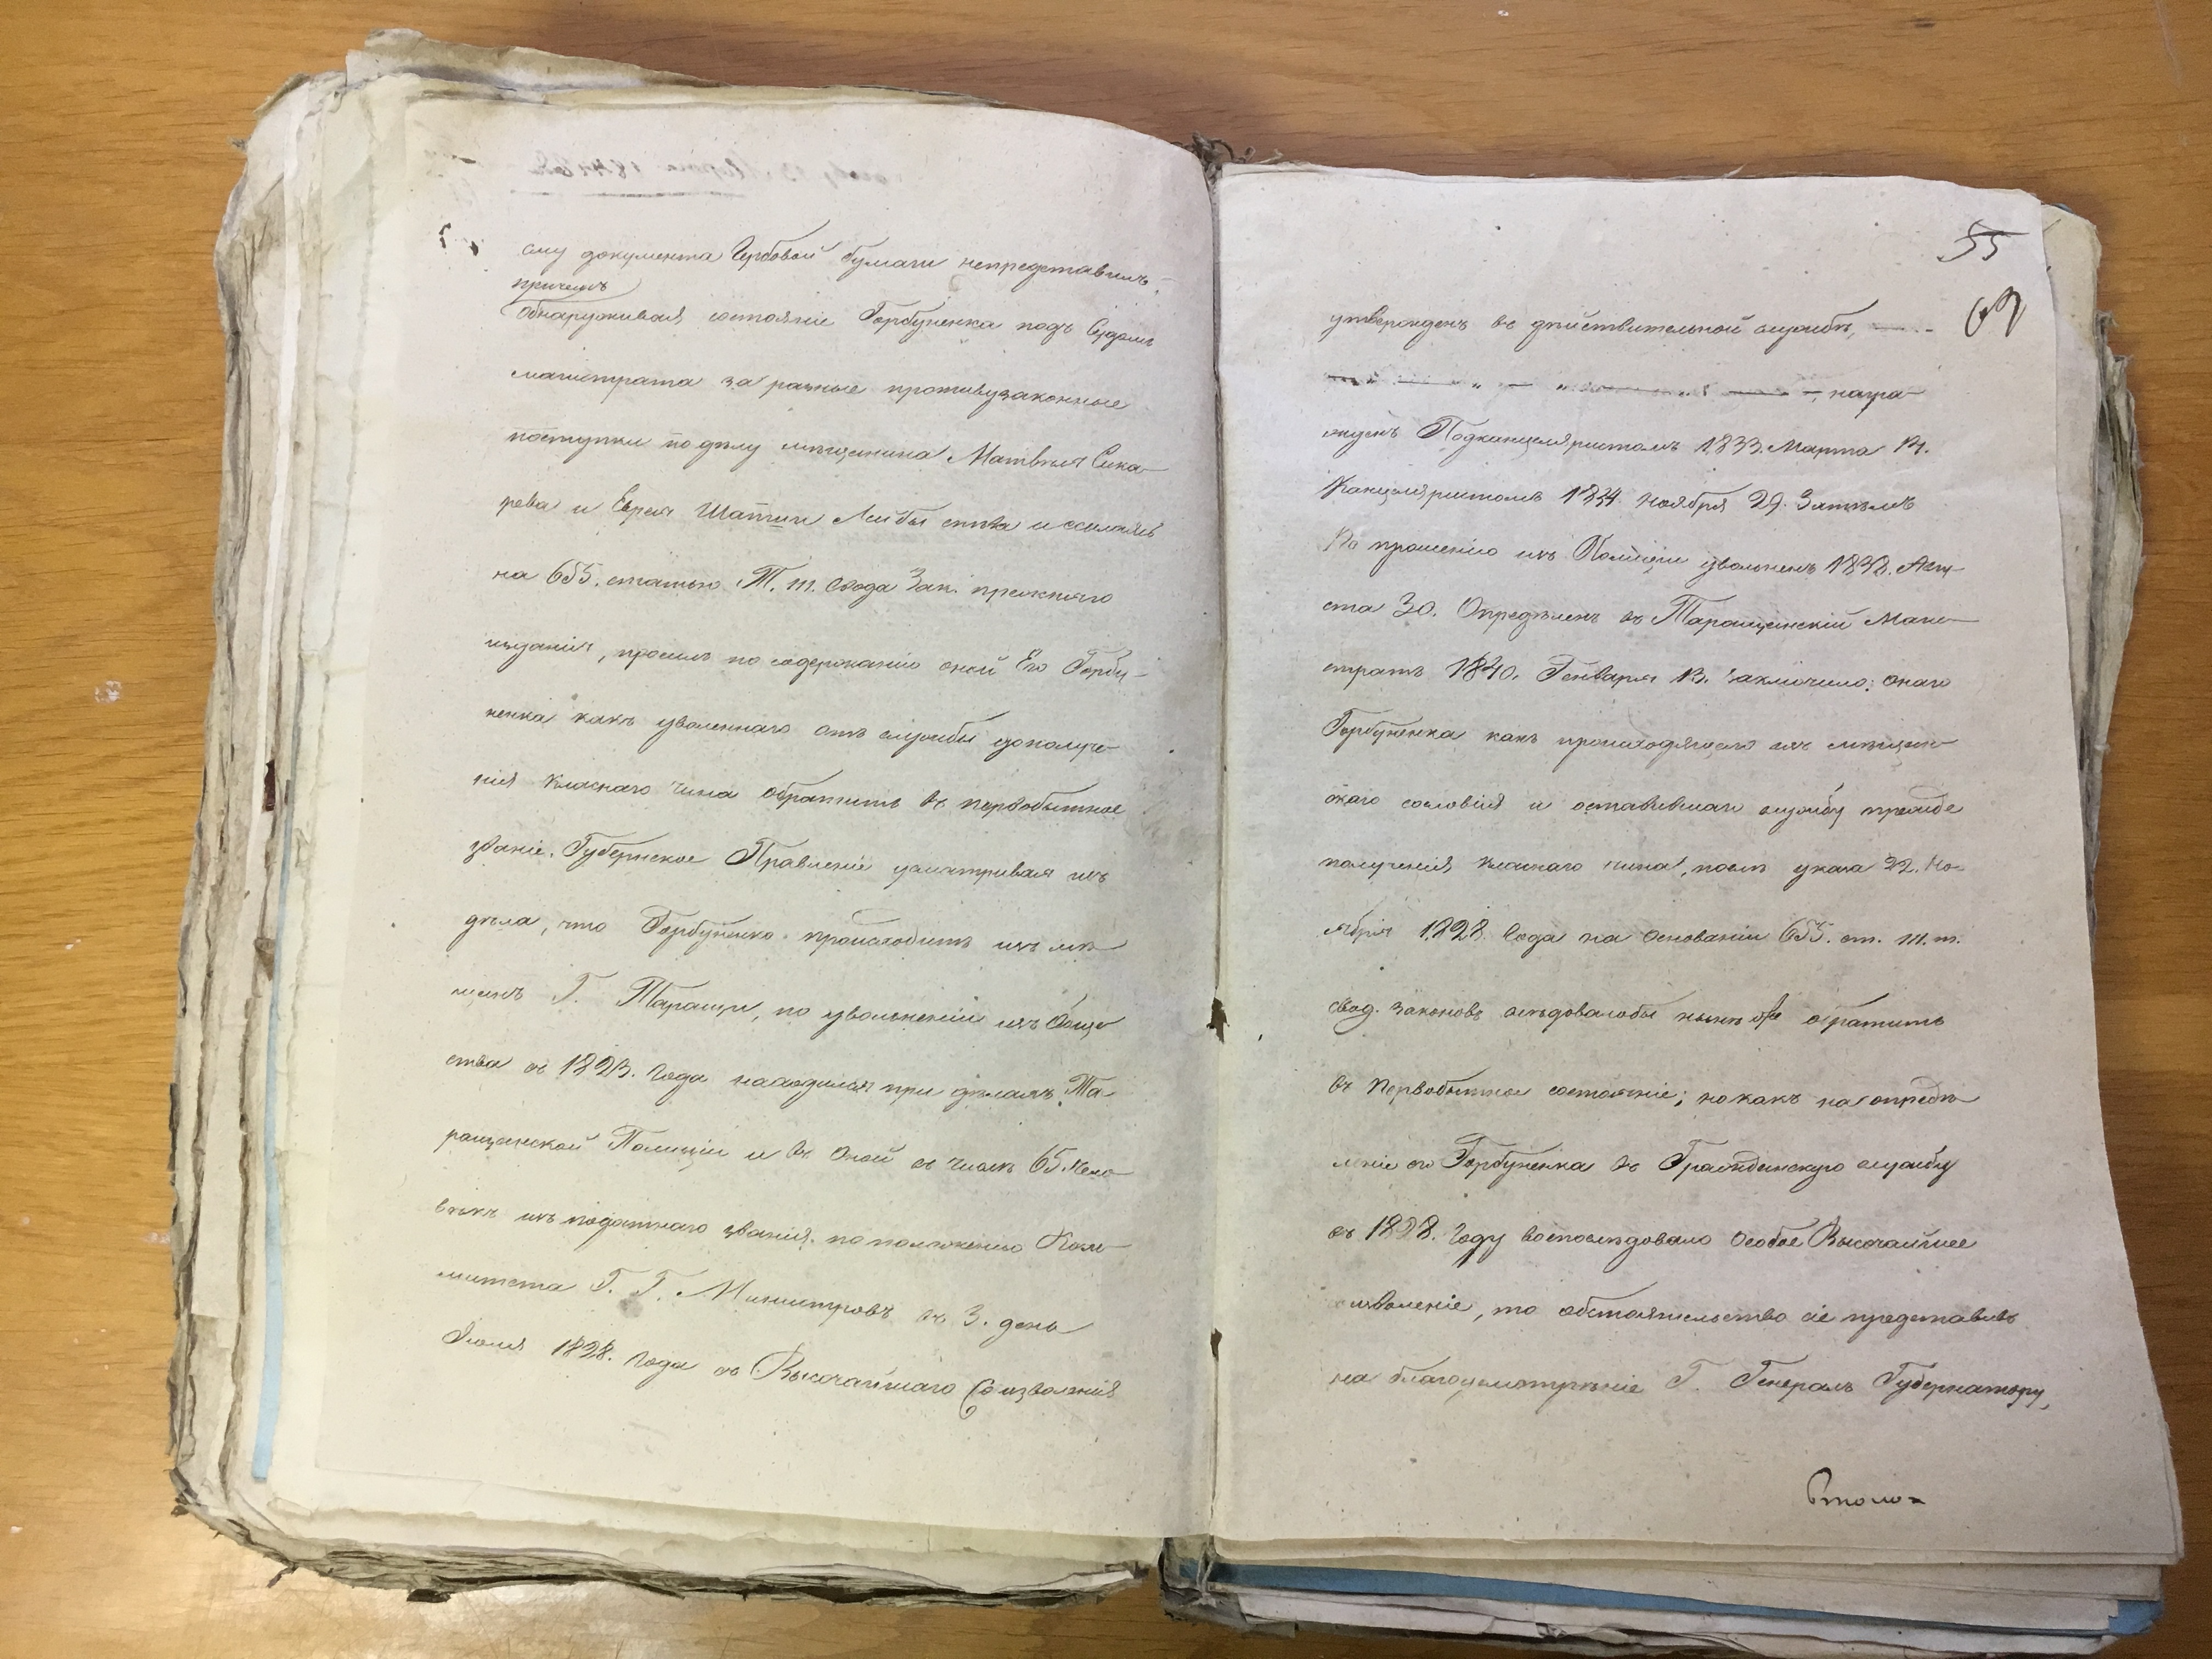 ему документа Гербовой бумаги непредставилъ,
причемъ
обнаруживая состояніе Горбуненка подъ Судомъ
магистрата за разные противузаконные
поступки по дѣлу мѣщанина Матвѣя Сика-
рева и Еврея Лейбы и ссылаясь
на 655. статью Т. III. Свода Зак. прежняго
изданія, просилъ по содержанію оной Его Горбу-
ненка какъ уволеннаго отъ службы до получе-
нія класнаго чина обратить въ первобытное
званіе. Губернское Правленіе усматривая изъ
дѣла, что Горбуненко происходитъ изъ мѣ-
щанъ Г. Таращи, по увольненіи изъ Обще-
ства съ 1823. года находился при дѣлахъ Та-
ращанской Полиціи и въ оной въ числѣ 65. чело-
вѣкъ изъ податнаго званія по положенію Ком-
митета Г. Г. Министровъ въ 3. день
Іюля 1828. года съ Высочайшаго Соизволенія
55
утвержденъ въ дѣйствительной службѣ,
награ-
жденъ Подканцеляристомъ 1833. Марта 14.
Канцеляристомъ 1834. Ноября 29. Затѣмъ
По прошенію изъ Полиціи уволенъ 1838. Авгу-
ста 30. Опредѣленъ въ Таращанскій Маги-
стратъ 1840. Генваря 13. заключило: онаго
Горбуненка какъ происходящаго изъ мѣщан-
скаго сословія и оставившаго службу прежде
полученія класнаго чина, послѣ указа 22. Но-
ября 1828. года на основаніи 655. ст. III. т.
свод. законовъ слѣдовалобы нынѣ же обратить
въ первобытное состояніе; но какъ на опредѣ-
леніе его Горбуненка въ Гражданскую службу
въ 1828. году воспослѣдовало особое Высочайшее
изволеніе, то обстоятельство сіе представить
на благоусмотрѣніе Г. Генералъ Губернатору,